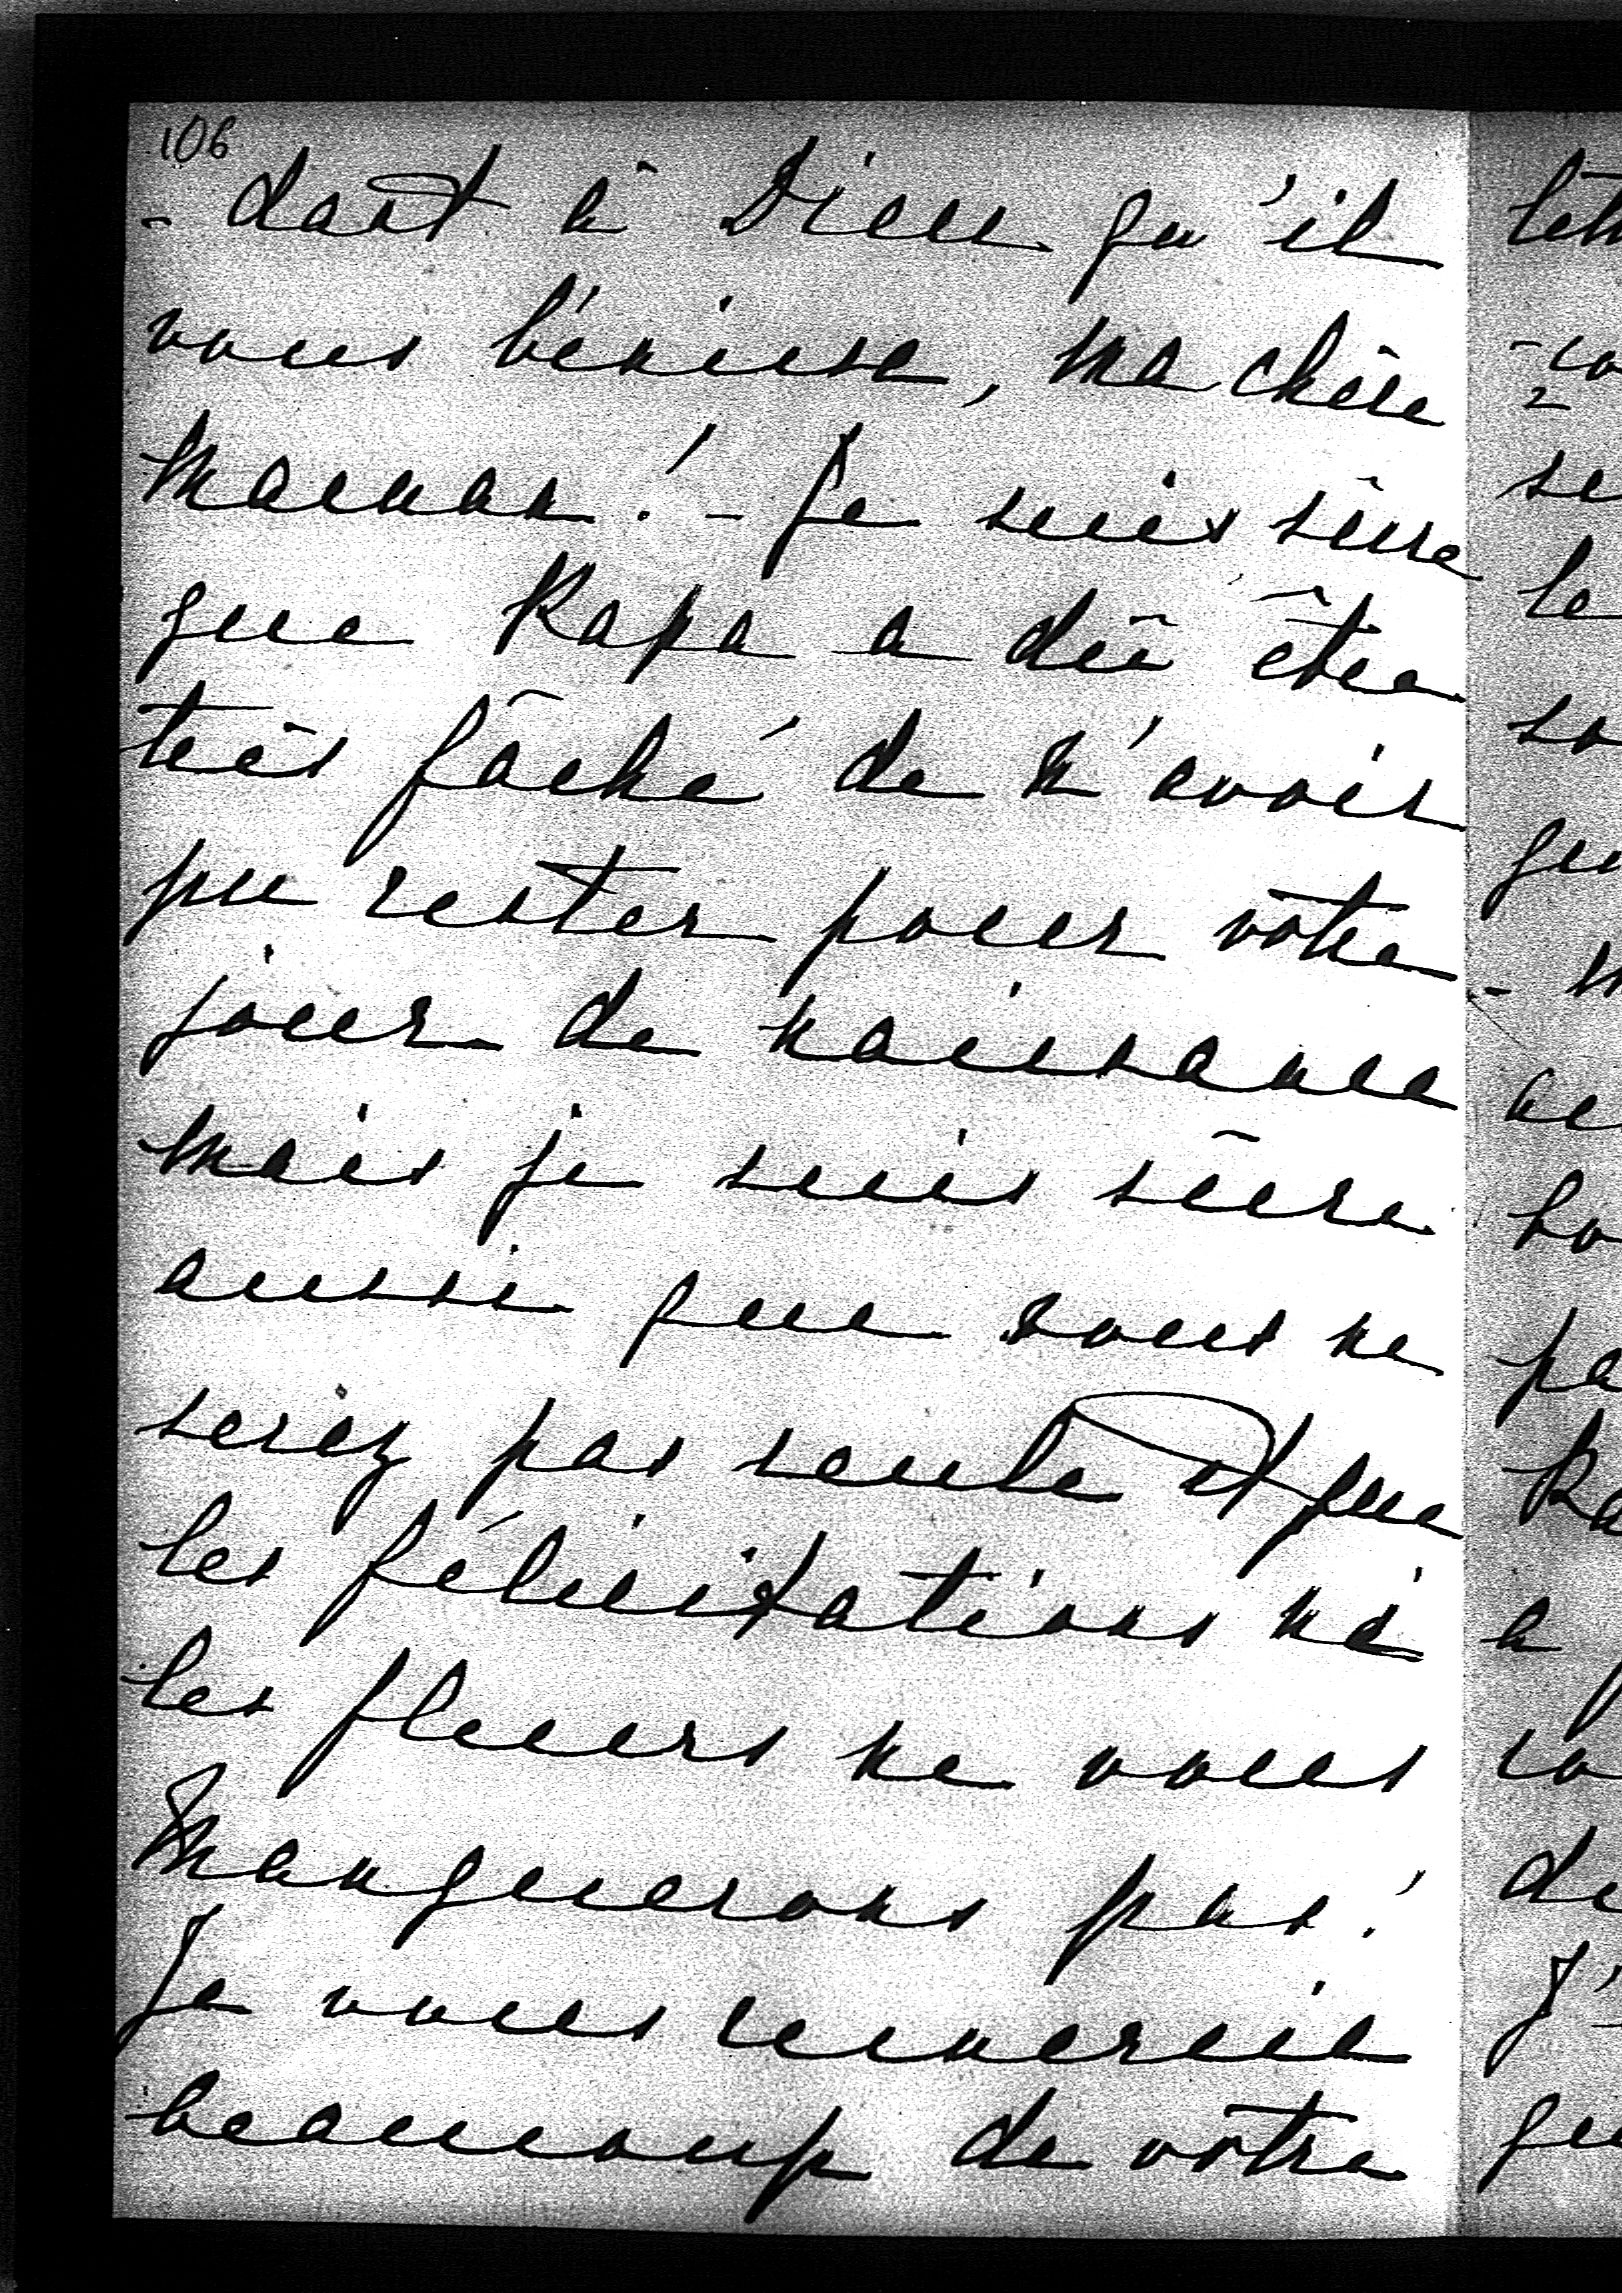 106
- dant à Dieu qu'il
vous bénisse, ma chère
Maman! - Je suis sûre
que Papa a dû être
très fâché de n'avoir
pu rester pour vôtre
jour de naissance
mais je suis sûre
aussi que vous ne
serez pas seule et que
les félicitations ni
les fleurs ne vous
manquerons pas!
Je vous remercie
beaucoup de vôtre